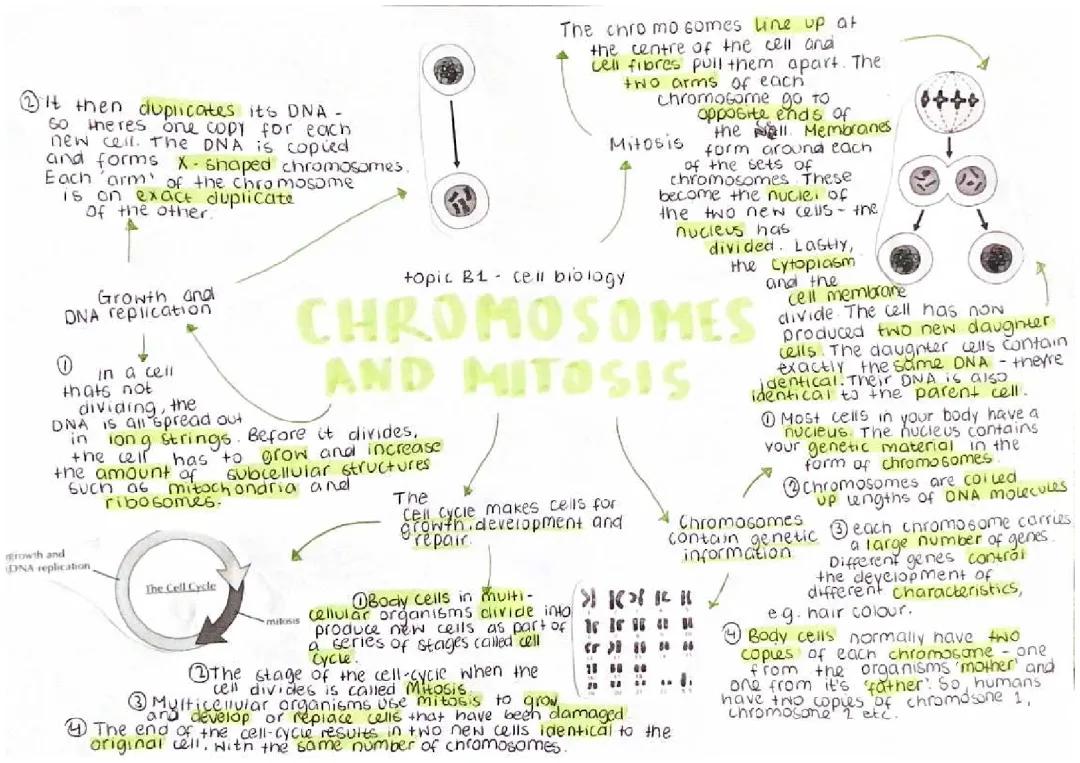 topic B1 - cell biology
CHROMOSOMES
AND MITOSIS
Growth and
DNA replication
① In a cell
thats not
dividing, the
DNA is all spread out
in long strings. Before it divides,
the cell has to grow and increase
the amount of subcellular structures
such as mitochondria and
ribosomes.
② It then duplicates its DNA -
so theres one copy for each
new cell. The DNA is copied
and forms X-shaped chromosomes.
Each 'arm' of the chromosome
is an exact duplicate
of the other.
Mitosis
The chromosomes line up at
the centre of the cell and
cell fibres pull them apart. The
two arms of each
chromosome go to
opposite ends of
the cell. Membranes
form around each
of the sets of
chromosomes. These
become the nuclei of
the two new cells - the
nucleus has
divided. Lastly,
the cytoplasm
and the
cell membrane
divide. The cell has now
produced two new daughter
cells. The daughter cells contain
exactly the same DNA - they're
identical. Their DNA is also
identical to the parent cell.
Chromosomes
contain genetic
information.
① Most cells in your body have a
nucleus. The nucleus contains
your genetic material in the
form of chromosomes.
② Chromosomes are coiled
up lengths of DNA molecules
③ each chromosome carries
a large number of genes.
Different genes control
the development of
different characteristics,
e.g. hair colour.
④ Body cells normally have two
copies of each chromosome - one
from the organisms 'mother' and
one from it's 'father'. So, humans
have two copies of chromosone 1,
chromosone 2 etc.
The
cell cycle makes cells for
growth, development and
repair.
① Body cells in multi-
cellular organisms divide into
produce new cells as part of
a series of stages called cell
cycle.
② The stage of the cell-cycle when the
cell divides is called Mitosis.
③ Multicellular organisms use mitosis to grow
and develop or replace cells that have been damaged
④ The end of the cell-cycle results in two new cells identical to the
original cell, with the same number of chromosomes.
growth and
DNA replication
The Cell Cycle
mitosis